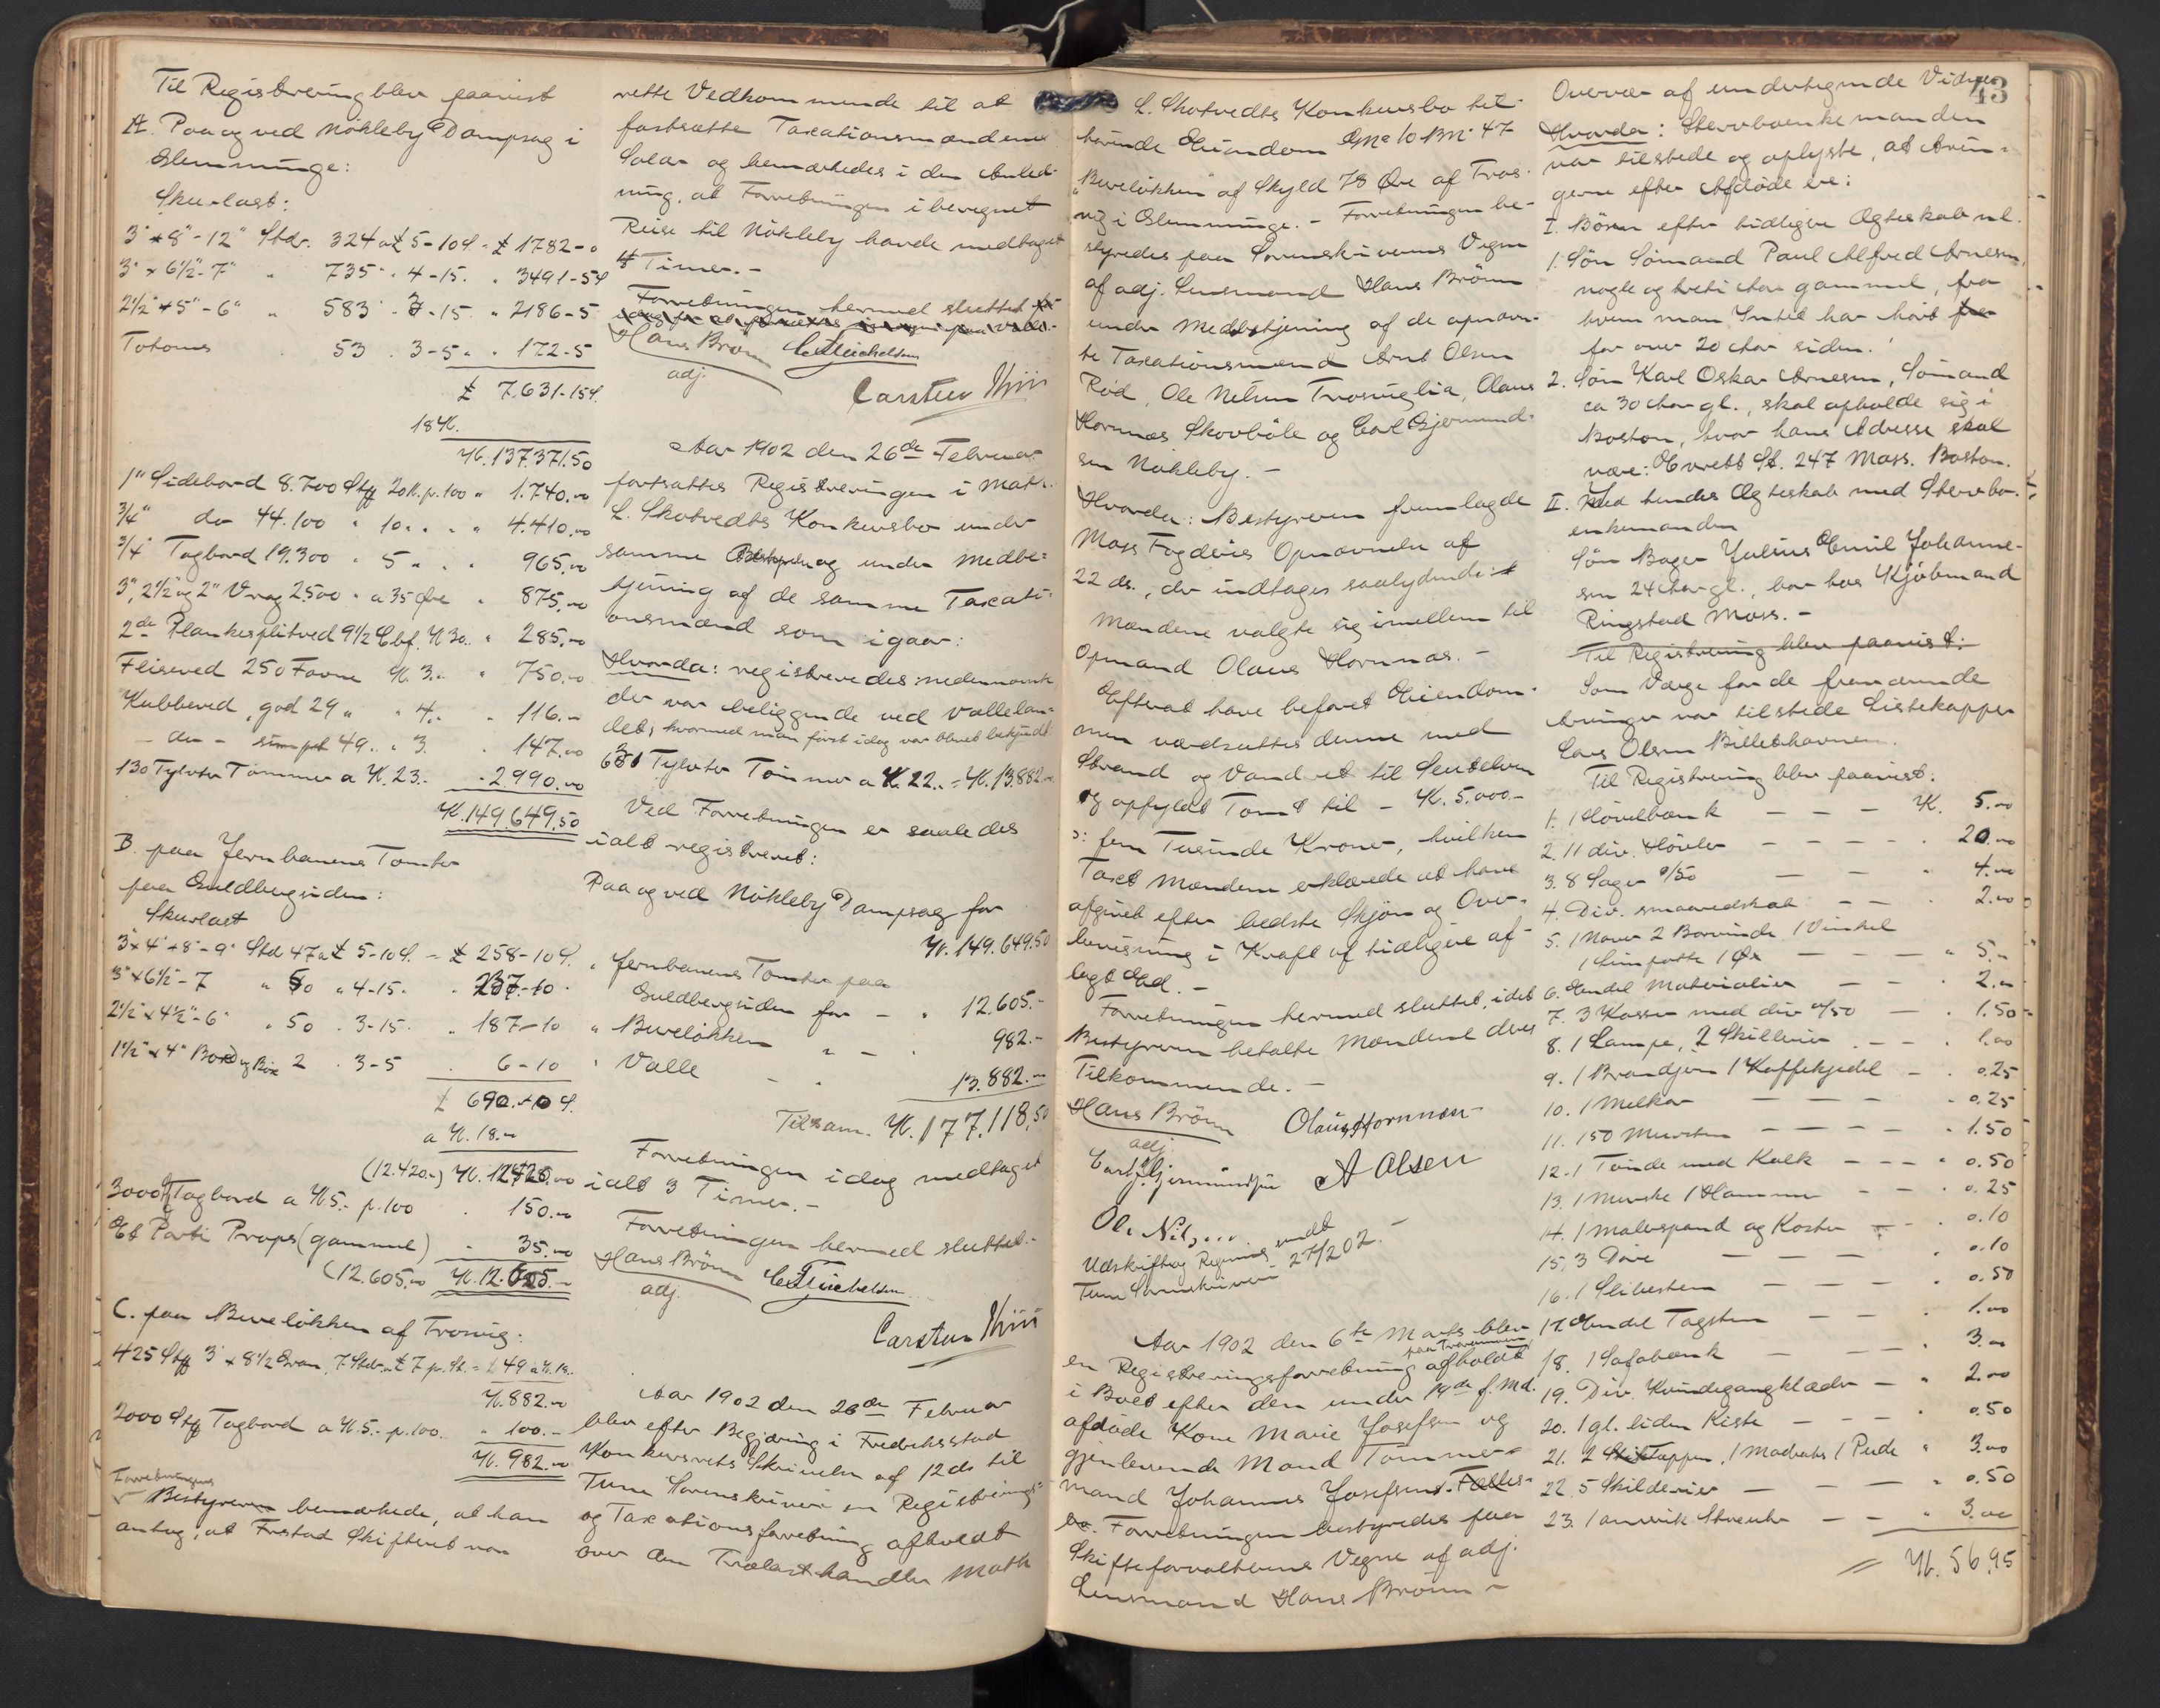 Til Registrering blev paavist
A. Paa og ved Nökleby Dampsag i
Glemminge:
Skurlast:
3" x 8"-12" Std. 324 a £ 5-10 s. = £ 1782-0
3" x 6½"-7" " 735 " 4-15. " 3491-5 s
2½" x 5"-6" " 583 " 3-15. " 2186-5
Totoms 53 . 3-5 " . 172-5
£ 7.631-15 s.
18 K.
K. 137.371.50
1" Sidebord 8.700 Stff 20 K. p. 100 " 1.740.00
¾" do 44.100 " 10. " " 4.410.00
¾" Tagbord 19.300 " 5 " . " 965.00
3", 2½" og 2" Vrag 2500 " a 35 Øre " 875.00
2de Plankesplitved 9½ Cbf. K 30. " 285.00
Fliseved 250 Favne K. 3. " 750.00
Kubbeved, god 29 " " 4. " 116.-
- do - 49. " 3. " 147.00
130 Tylvter Tömmer a K. 23. - 2.990.00
K. 149.649.50
B. paa Jernbanens Tomter
paa Guldbergsiden:
Skurlast
3" x 4" x 8"-9" Std 47 a £ 5-10 s. = £ 258-10 s.
3" x 6½"-7 " 50 " 4-15. " 237-10.
2½" x 4½"-6" " 50 . 3-15. " 187-10
1½" x 4" Bord og Box 2 . 3-5 . 6-10
£ 690.-0 s.
a K. 18.-
(12.420.-) K. 12.420.00
3000 Stff Tagbord a K. 5.- p. 100 . 150.00
Et Parti Props (gammel) " 35.00
(12.605.00 K. 12.605.-
C. paa Beveløkken af Trosvig:
425 Stff 3" x 8½ Gran, 7 Std. a £ 7 p. St. = £ 49 a K. 18.
K. 882.00
2000 Stff Tagbord a K. 5.- p. 100. " 100.-
K. 982.00
Forretningens
Bestyreren bemærkede, at han
antog, at Frstad Skifteret var
rette Vedkommende til at
fastsætte Taxationsmændenes
Salær og bemærkedes i den Anled-
ning, at Forretningen iberegnet
Reise til Nökleby havde medtaget
4 Timer.-
Forretningen hermed sluttet
Hans Brönn
adj.
Carsten Thiis
Aar 1902 den 26de Februar
fortsattes Registreringen i Math.
L. Skotvedts Konkursbo under
samme Bestyrelse og under Medbe-
tjening af de samme Taxati-
onsmænd som igaar:
Hvorda: registreredes nedennævnte
der var beliggende ved Vallelan-
det, hvormed man først idag var blevet bekjendt
631 Tylvter Tömmer a K. 22. = K. 13.882.00
Ved Forretningen er saaledes
ialt registreret:
Paa og ved Nökleby Dampsag for
K. 149.649.50
" Jernbanens Tomter paa
Guldbergsiden for - " 12.605.-
" Beveløkken " - . 982.-
" Valle - " 13.882.00
Tilsam. K. 177.118,50
Forretningen idag medtaget
ialt 3 Timer.-
Forretningen hermed sluttet.-
Hans Brönn
adj.
Carsten Thiis
Aar 1902 den 26de Februar
blev efter Begjæring i Fredriksstad
Konkursrets Skrivelse af 12 ds til
Tune Sorenskriveri en Registrerings-
og Taxationsforretning afholdt
over den Trælasthandler Math
L. Skotvedts Konkursbo til-
hörende Eiendom Gno 10 Bno 47
"Beveløkken" af Skyld 78 Øre af Tros-
vig i Glemminge.- Forretningen be-
styredes paa Sorenskriverens Vegne
af adj. Lensmand Hans Brönn
under Medbetjening af de opnævn-
te Taxationsmænd Arnt Olsen
Röd, Ole Nilsen Trosviglia, Olaus
Hornnæs Skovböle og Carl Gjermund-
sen Nökleby.-
Hvorda: Bestyreren fremlagde
Moss Fogderies Opnævnelse af
22 ds., der indtages saalydende:
Mændene valgte sig imellem til
Opmand Olaus Hornnæs.-
Efterat have befaret Eiendom-
men værdsattes denne med
Strand og Vandret til Seutelven
og opfyldt Tomt til - K. 5.000.-
ɔ: fem Tusinde Kroner, hvilken
Taxt Mændene erklærede at have
afgivet efter bedste Skjön og Over-
bevisning i Kraft af tidligere af-
lagt Ed.-
Forretningen hermed sluttet, idet
Bestyreren betalte Mændene deres
Tilkommende.-
Hans Brönn Olaus Hornnæs
adj.
Carl Gjermundsen A Olsen
Ole Nilsen
Udskrift og Regning sendt
Tune Sorenskriveri 27/2 02.-
Aar 1902 den 6te Marts blev
paa Trosvikmoen
en Registreringsforretning afholdt
i Boet efter den under 14de f. Md.
afdöde Kone Marie Josefsen og
gjenlevende Mand Tömmer-
mand Johannes Josefsens Fælles-
bo. Forretningen bestyredes paa
Skifteforvalterens Vegne af adj.
Lensmand Hans Brönn -
43
Overvær af undertegnede Vidner
Hvorda: Stervboenkemanden
var tilstede og oplyste, at Arvin-
gerne efter Afdöde er:
I. Börn efter tidligere Ægteskab nl.
1. Sön Sömand Paul Alfred Arnesen,
nogle og treti Aar gammel, fra
hvem man Intet har hört fra
for over 20 Aar siden.
2. Sön Karl Oskar Arnesen, Sömand
ca 30 Aar gl., skal opholde sig i
Boston, hvor hans Adresse skal
være: Everett St. 247 Mass. Boston.
II. Med hendes Ægteskab med Stervbo-
enkemanden
Sön Bager Julius Emil Johanne-
sen 24 Aar gl., bor hos Kjöbmand
Ringstad Moss.-
Til Registrering blev paavist:
Som Værge for de fraværende
Arvinger var tilstede Listekapper
Lars Olsen Billethavnen.
Til Registrering blev paavist:
1. 1 Hövelbænk - - - K. 5.00
2. 11 div. Hövler - - - - . 20.00
3. 8 Sager a/50 - - " 4.00
4. Div. smaaredskab - - . 2.00
5. 1 Naver 2 Borvinde 1 Vinkel
1 Limpotte 1 Øx - - - " 5.-
6. Endel Materialier - - . 2.-
7. 3 Kasser med div a/50 - . 1.50
8. 1 Lampe, 2 Skillerier . - - . 1.00
9. 1 Brændjern 1 Kaffekjedel - . 0.25
10. 1 Melkar - - - . 0.25
11. 150 Mursten - - - - . 1.50
12. 1 Tönde med Kalk - - - " 0.50
13. 1 Murske 1 Hammer - - . 0.25
14. 1 Malerspand og Koster - . 0.10
15. 3 - - - . 0.10
16. 1 Slibesten - - - . 0.50
17. Endel Tagsten - - . 1.00
18. 1 Sofabænk - - - . 3.00
19. Div. Kvindegangklæder - " 2.00
20. 1 gl. liden Kiste - - - . 0.50
21. 2 Tæpper, 1 Madrats 1 Pude " 3.00
22. 5 Skilderier - - - " 0.50
23. 1 amerik Stoeuhr - - " 3.00
K. 56,95